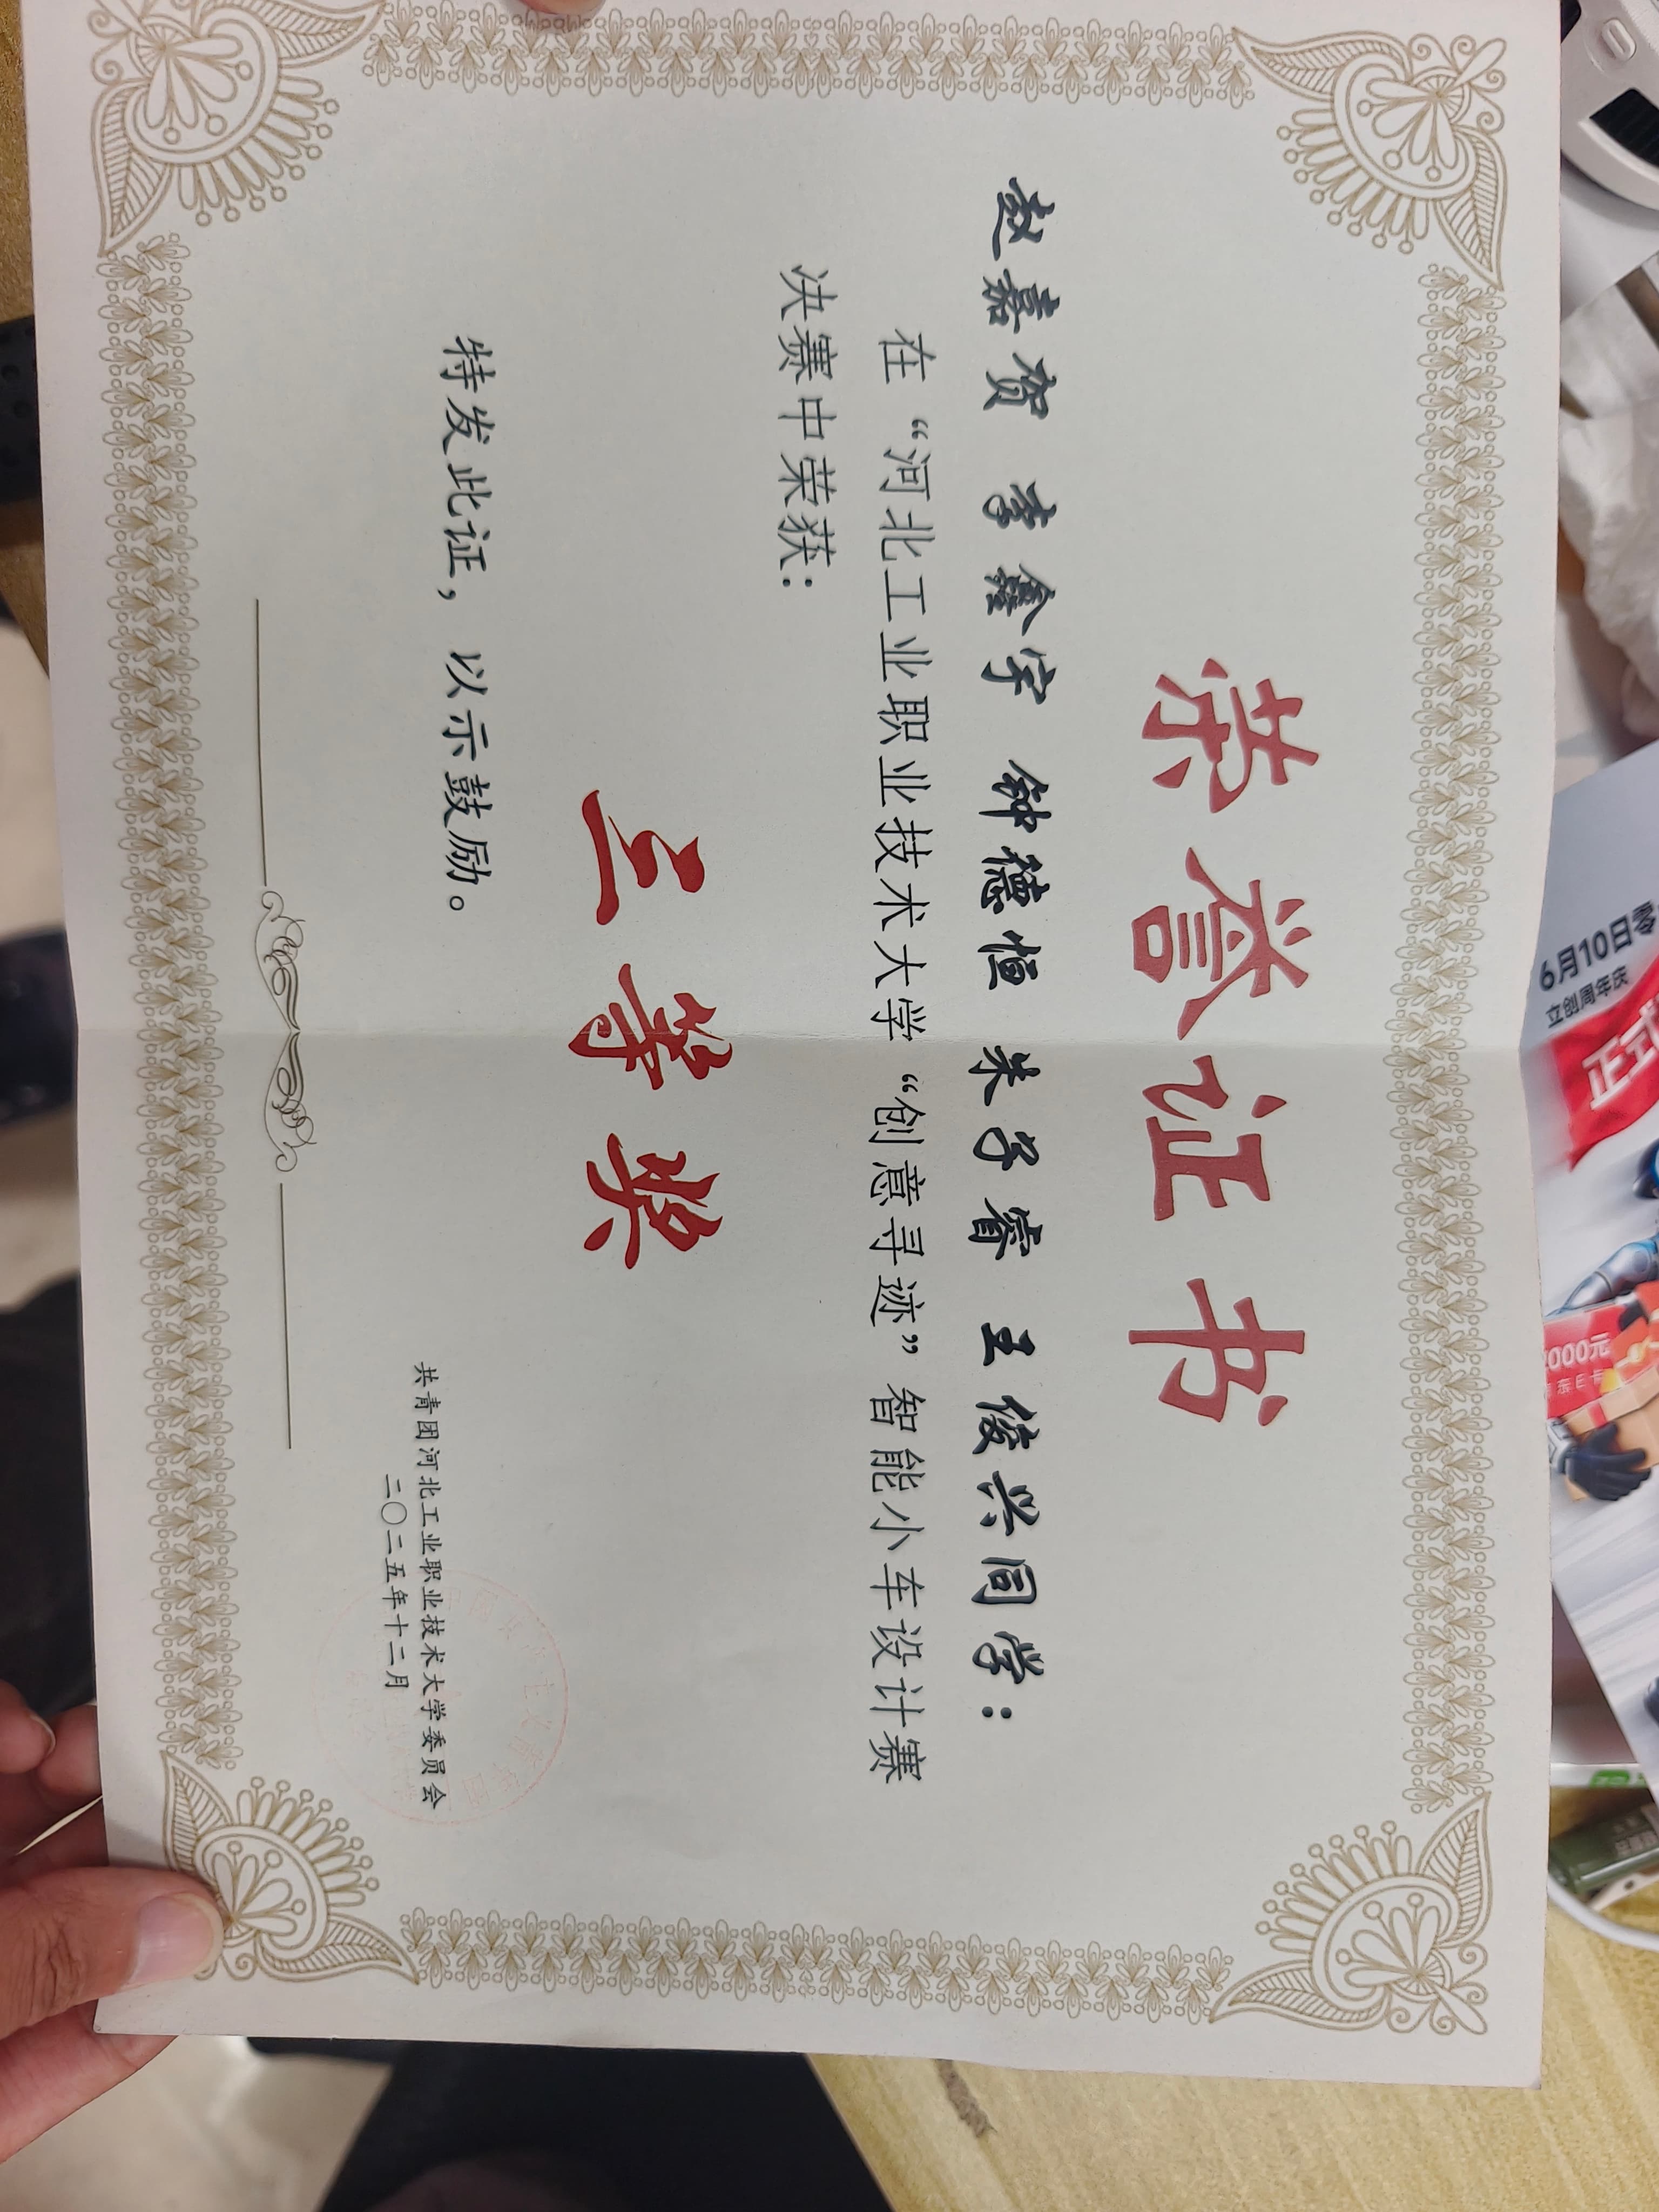 荣誉证书
赵嘉贺 李鑫宇 钟德恒 朱子睿 王俊兴同学：
在“河北工业职业技术大学“创意寻迹”智能小车设计赛
决赛中荣获：
三等奖
特发此证，以示鼓励。
共青团河北工业职业技术大学委员会
二〇二五年十二月
6月10日
立创周年庆
正式
000元